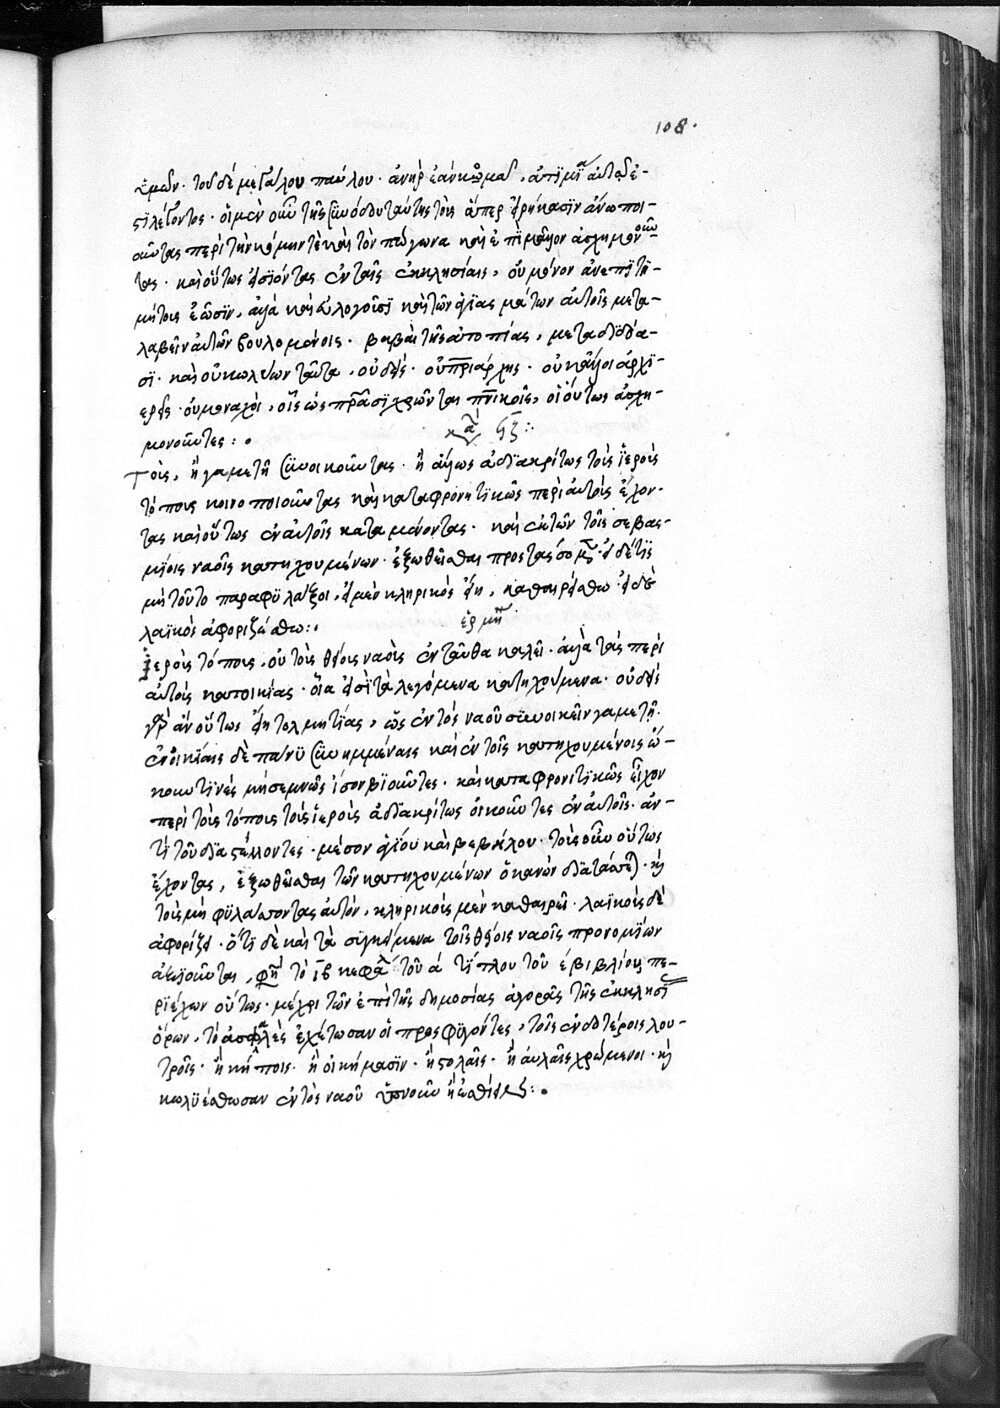 108.
ἡμῶν. τοῦ δὲ μεγάλου παύλου. ἀνὴρ ἐὰν κομᾶ, ἀτιμία αὐτῷ ἐ-
στι λέγοντος. οἱ μὲν οὖν τῆς συνόδου ταύτης τοὺς ἅπερ εἰρήκασιν ἄνω ποι-
οῦντας περὶ τὴν κόμην τὲ καὶ τὸν πώγωνα καὶ ἐπὶ μᾶλλον ἀσχημονοῦν
τας. καὶ οὕτως εἰσϊόντας ἐν ταῖς ἐκκλησίαις, οὐ μόνον ἀνεπιτι-
μήτους ἐῶσιν, ἀλλὰ καὶ εὐλογοῦσι καὶ τῶν ἁγιασμάτων αὐτοῖς μετα-
λαβεῖν αὐτῶν βουλομένοις. βαβαὶ τῆς ἀτοπίας, μεταδιδόα-
σϊ. καὶ οὐ κωλύων ταῦτα, οὐδείς. οὐ πριάρχης. οὐκ ἄλλοι ἀρχϊ-
ερεῖς. οὐ μοναχοὶ, οἷς ὡς πράσι χρῶνται πνικοῖς, οἱ οὕτως ἀσχη-
μονοῦντες:.
κα ϟζ:
Τοὺς, ἢ γαμετῆ συνοικοῦντας. ἢ ἄλλως ἀδιακρίτως τοὺς ἱεροὺς
τόπους κοινοποιοῦντας καὶ καταφρονητικῶς περὶ αὐτοὺς ἔχον-
τας καὶ οὕτως ἐν αὐτοῖς καταμένοντας. καὶ ἐκ τῶν τοῖς σεβασ-
μίοις ναοῖς κατηχουμένων. ἐξωθεῖσθαι προστάσσομεν. εἰ δέ τις
μὴ τοῦτο παραφυλάξοι, εἰ μὲν κληρικὸς εἴη, καθαιρείσθω. εἰ δὲ
λαϊκὸς ἀφοριζέσθω:.
ἑρμη
Ἱεροὺς τόπους. οὐ τοὺς θείους ναοὺς ἐνταῦθα καλεῖ. ἀλλὰ τὰς περὶ
αὐτοὺς κατοικίας. οἷα εἰσὶ τὰ λεγόμενα κατηχούμενα. οὐδεὶς
γὰρ ἂν οὕτως εἴη τολμητίας, ὡς ἐντὸς ναοῦ συνοικεῖν γαμετῆ.
ἐν οἰκίαις δὲ πάνυ συνημμέναις καὶ ἐν τοῖς κατηχουμένοις ὤ-
κουν τινὲς μὴ σεμνῶς ἴσον βϊοῦντες. καὶ καταφρονιτικῶς εἶχον
περὶ τοὺς τόπους τοὺς ἱεροὺς ἀδϊακρίτως οἰκοῦντες ἐν αὐτοῖς. ἀν-
τὶ τοῦ διαστέλλοντες. μέσον ἁγίου καὶ βεβήλου. τοὺς οὖν οὕτως
ἔχοντας, ἐξωθεῖσθαι τῶν κατηχουμένων ὁ κανὼν διατάττε. κὶ
τοὺς μὴ φυλάττοντας αὐτὸν, κληρικοὺς μὲν καθαιρεῖ. λαϊκοὺς δὲ
ἀφορίζει. ὅτι δὲ καὶ τὰ συγκείμενα τοῖς θείοις ναοῖς προνομίων
ἀξιοῦνται, φη τὸ ιβ κεφα τοῦ α τίτλου τοῦ ε βιβλίου, πε-
ριέχων οὕτως. μέχρι τῶν ἐπὶ τῆς δημοσίας ἀγορᾶς τῆς ἐκκλησί
ὅρων, τὸ ἀσφαλὲς ἐχέτωσαν οἱ προσφυγόντες, τοῖς ἐνδοτέροις λου-
τροῖς. ἢ κήποις. ἢ οἰκήμασϊν. ἢ στολαῖς. ἢ αὐλαῖς χρώμενοι. κὶ
κωλϋέσθωσαν ἐντὸς ναοῦ ὑπνοῦν ἢ ἐσθίειν:.